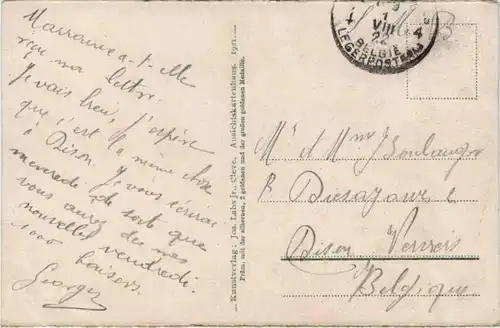 Marraine a-t-elle
reçu ma lettre.
Je vais bien, j'espère
que c'est la même chose
à Dison. Je vous écrirai
mercredi de sort que
vous aurez des mes
nouvelles vendredi.
1000 baisers.
Georges
Kunstverlag: Jos. Lahs jr., Cleve. Ansichtskartenhaus. 1921.
Präm. mit der silbernen, 2 goldenen und der großen goldenen Medaille.
1
VIII
22
4
BELGIE
LEGERPOSTERIJ
S. M. B
Mr et Mme
Dison Verviers
Belgique